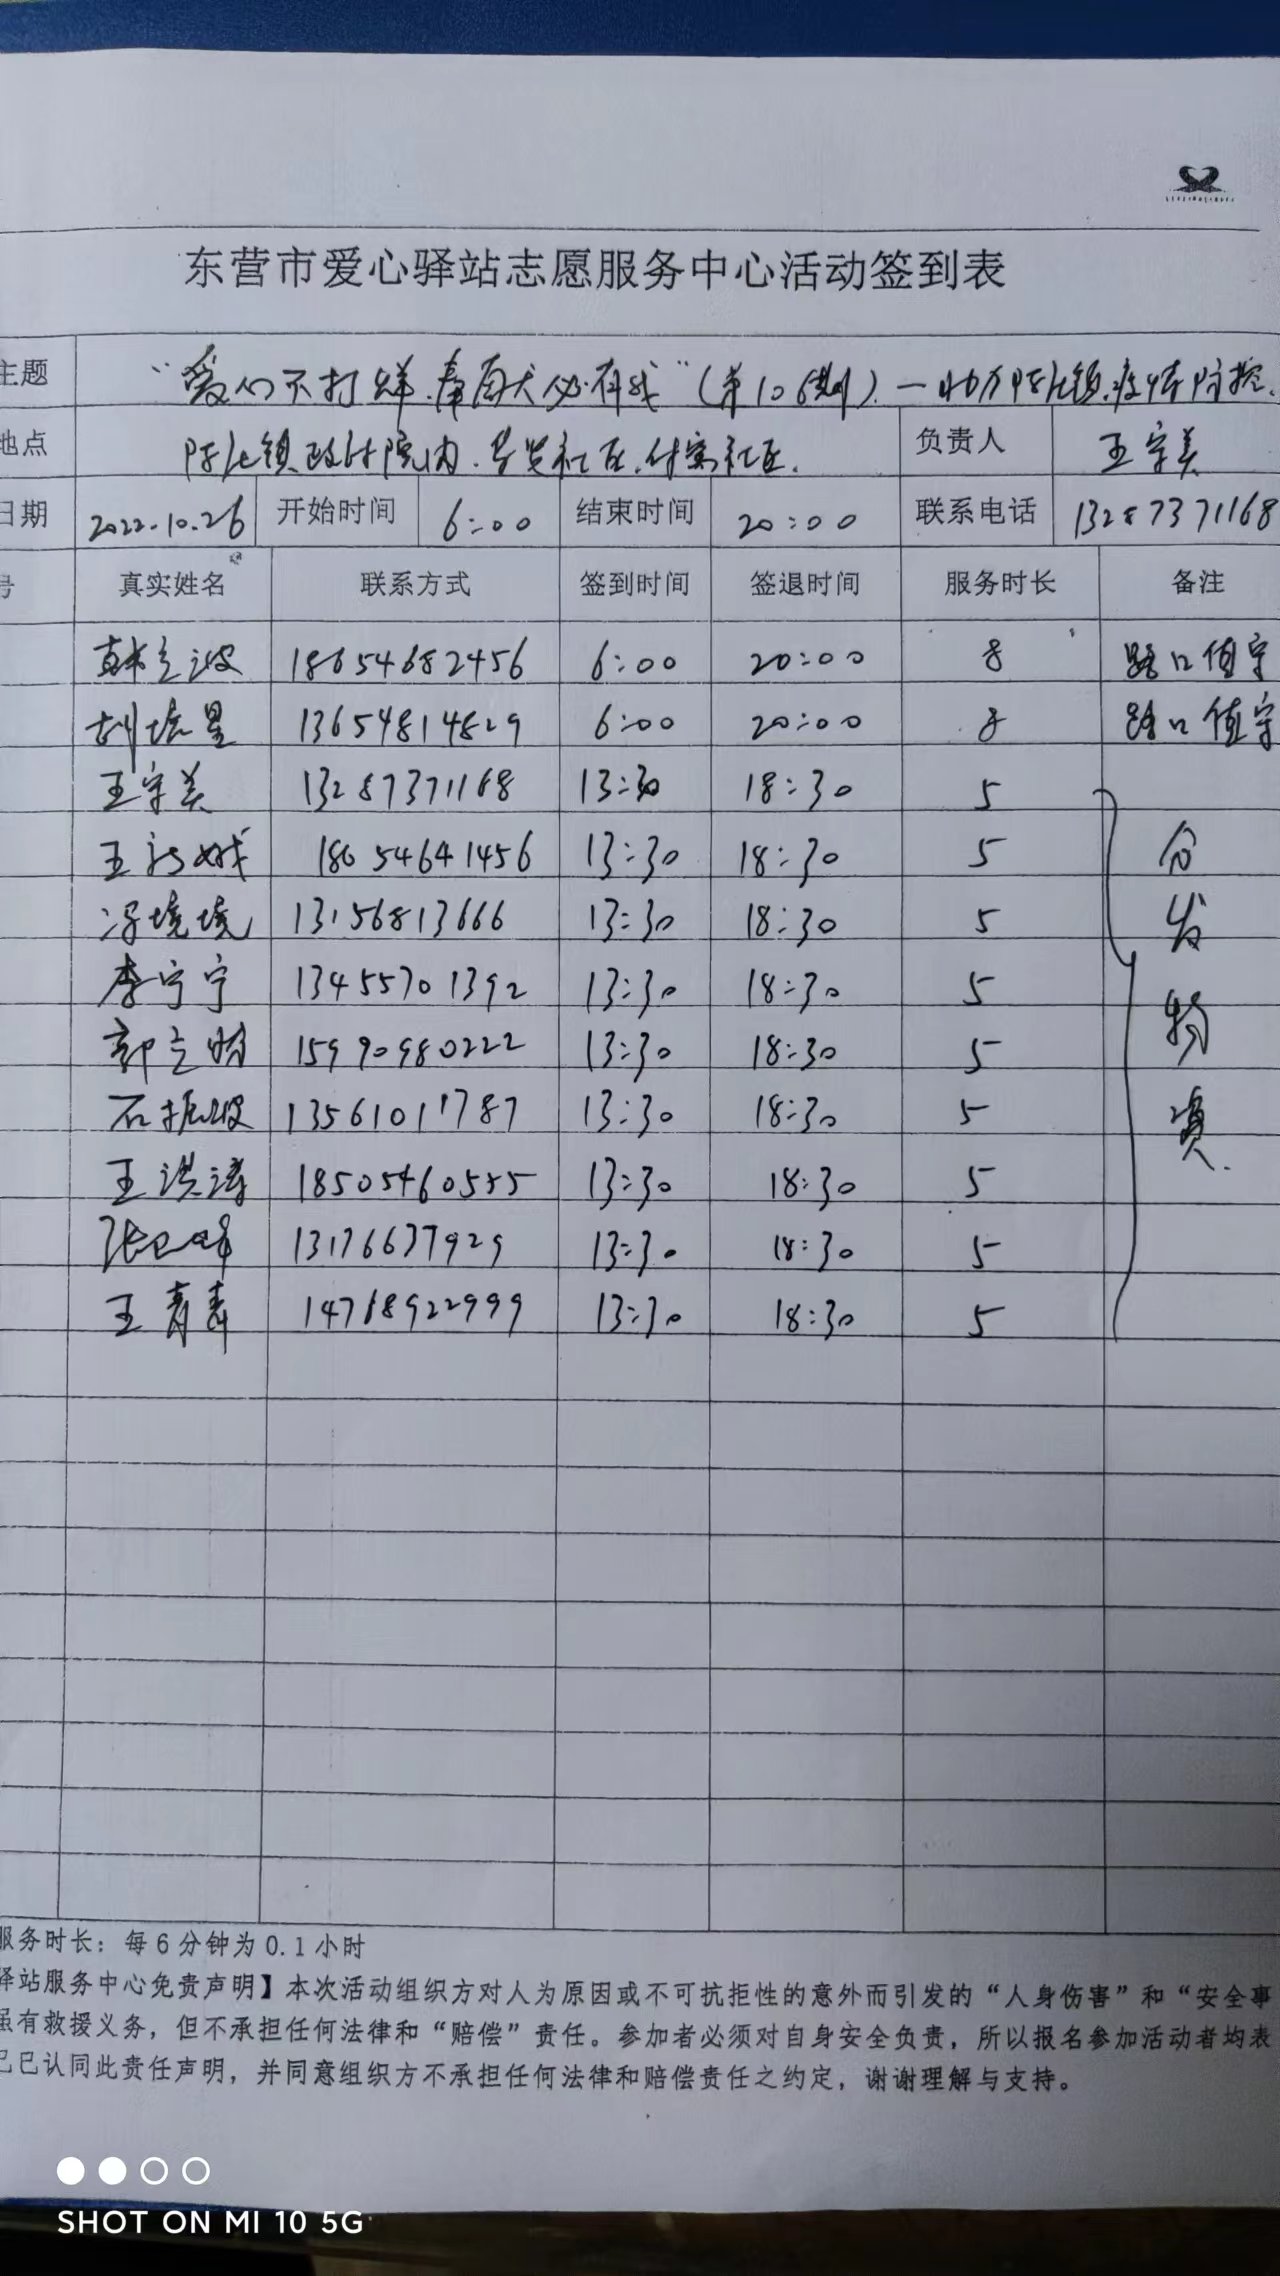 东营市爱心驿站志愿服务中心活动签到表
主题 “爱心不打烊,奉献必有我”(第106期)—助力陈庄镇疫情防控.
地点 陈庄镇政府院内. 社区. 社区. 负责人 王守美
日期 2022.10.26 开始时间 6:00 结束时间 20:00 联系电话 13287371168
号 真实姓名 联系方式 签到时间 签退时间 服务时长 备注
韩立波 18654682456 6:00 20:00 8 路口值守
刘培星 13654814829 6:00 20:00 8 路口值守
王守美 13287371168 13:30 18:30 5
王 18654641456 13:30 18:30 5
冯境境 13156813666 13:30 18:30 5
李宁宁 13455701392 13:30 18:30 5
郭立明 15990980222 13:30 18:30 5
石振波 13561011787 13:30 18:30 5
王洪涛 18505460555 13:30 18:30 5
张卫峰 13176637929 13:30 18:30 5
王青青 14768922999 13:30 18:30 5
分发物资.
服务时长:每6分钟为0.1小时
驿站服务中心免责声明】本次活动组织方对人为原因或不可抗拒性的意外而引发的“人身伤害”和“安全事
虽有救援义务,但不承担任何法律和“赔偿”责任。参加者必须对自身安全负责,所以报名参加活动者均表
己已认同此责任声明,并同意组织方不承担任何法律和赔偿责任之约定,谢谢理解与支持。
SHOT ON MI 10 5G